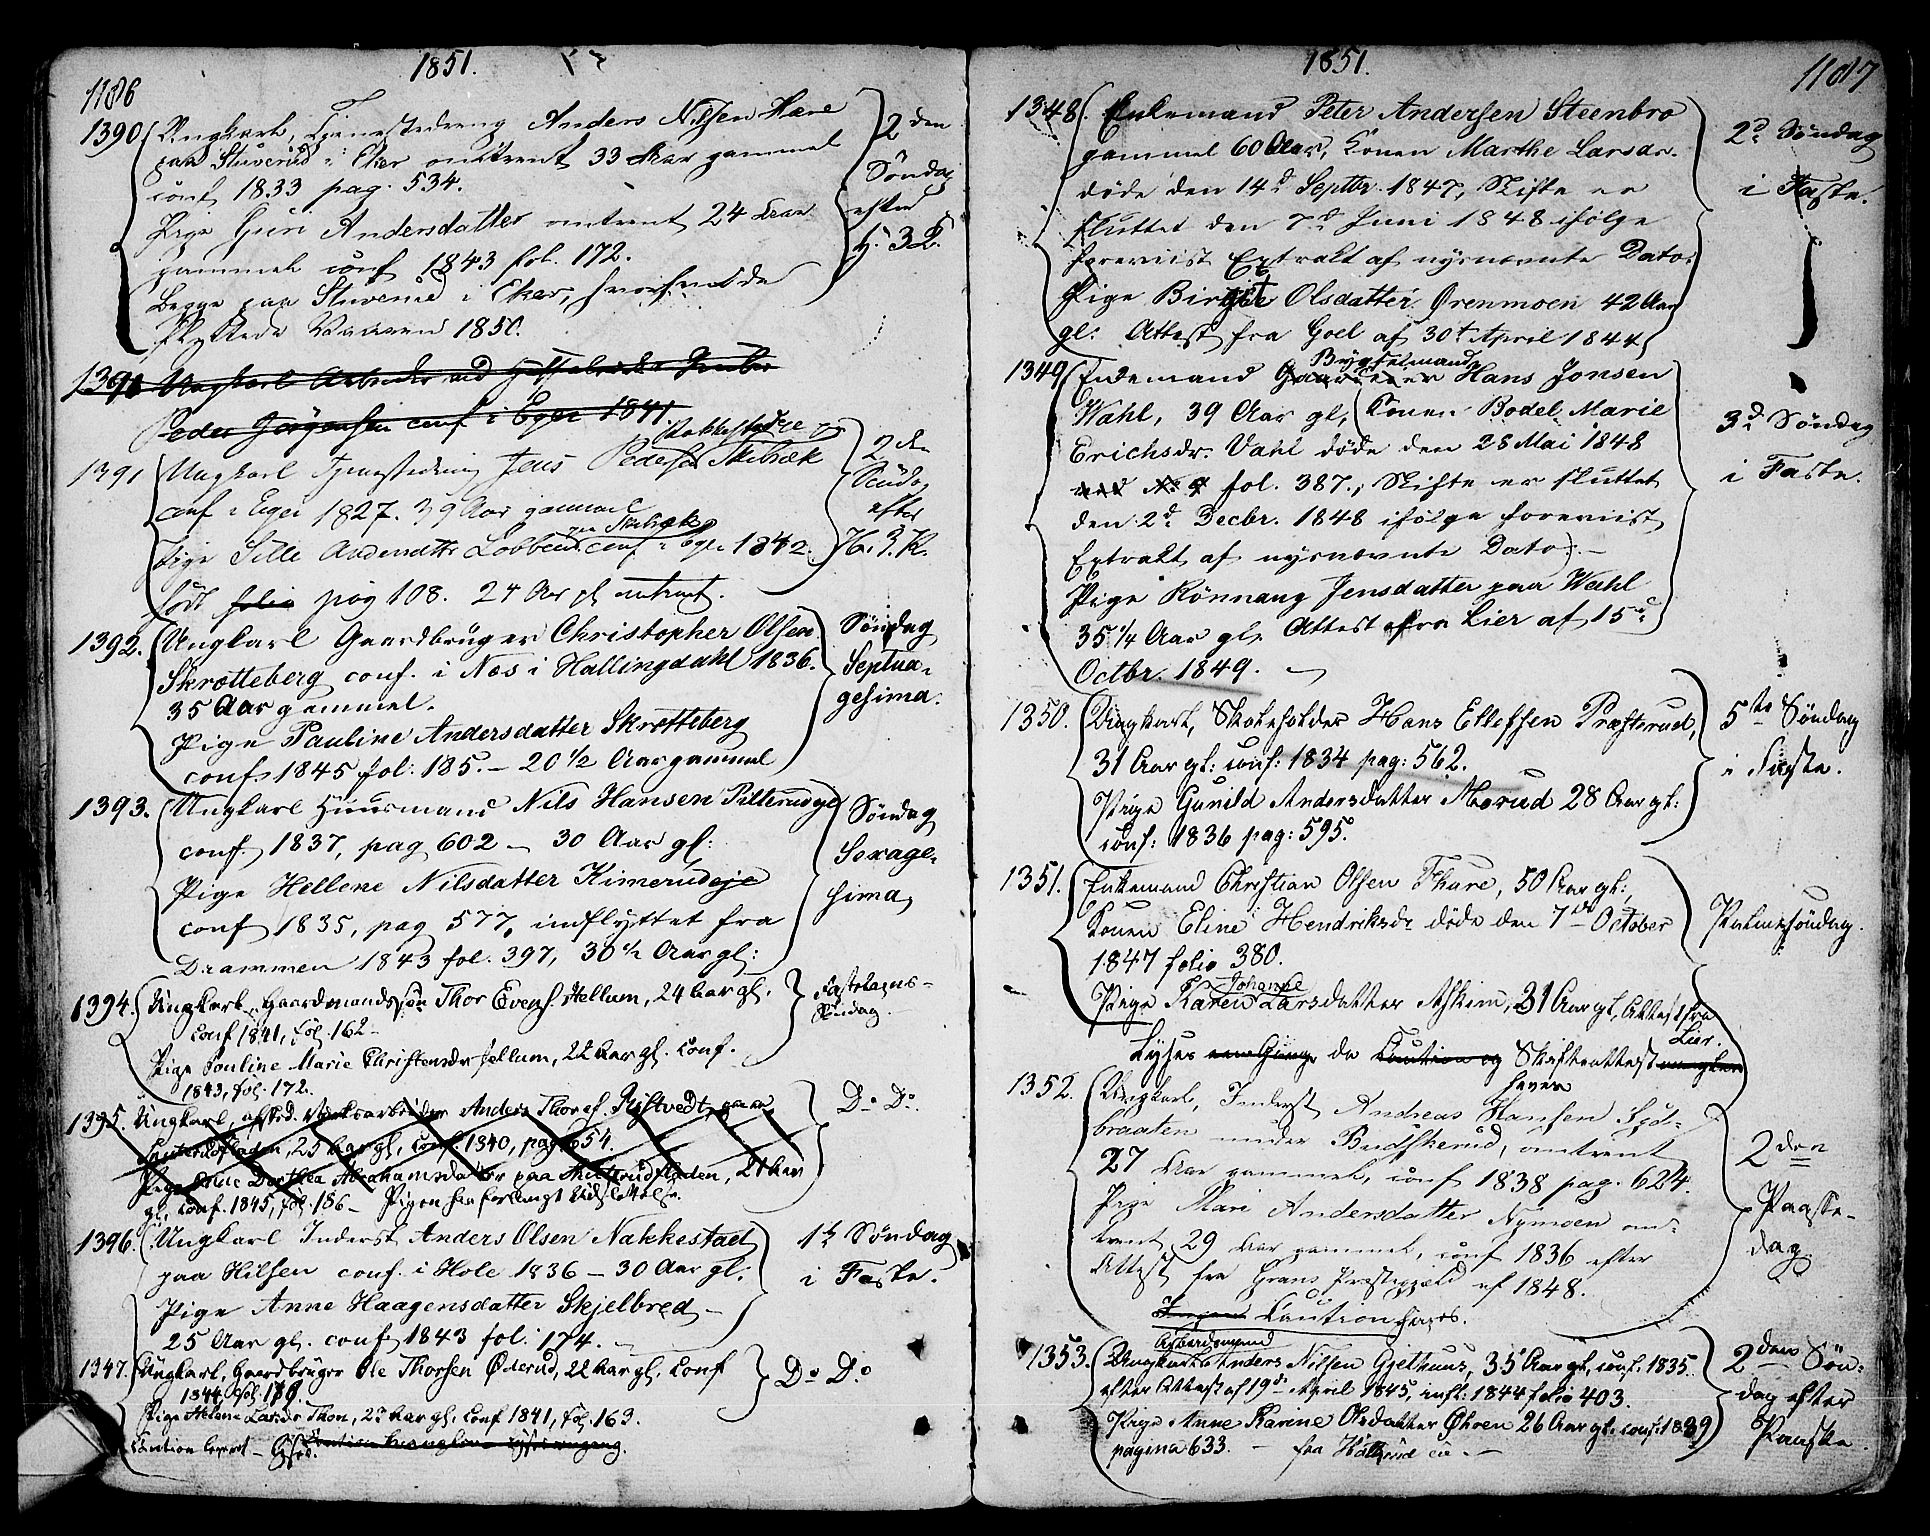 1851.
1186
1390 Ungkarl, Tjenestedreng Anders Nilsen Hære
paa Stuverud i Eker omtrent 33 Aar gammel
conf 1833 pag. 534.
Pige Guri Andersdatter omtrent 24 Aar
gammel conf 1843 fol. 172.
Begge paa Stuverud i Eker, hvorhen de
flyttede Vaaren 1850.
2den
Søndag
efter
H. 3 K.
1391 Ungkarl Arbeider ved Hassel
Peder Jørgensen conf i Eger 1841.
Nakkestad
1391 Ungkarl Tjenestedreng Jens Pedersen Skibæk
conf i Eger 1827. 39 Aar gammel
paa Skibæk
Pige Sille Andersdattr Lobben conf i Eger 1842.
født folio pag 108. 24 Aar gl omtrent.
2den
Sønda
efter
H. 3. K.
1392. Ungkarl Gaardbruger Christopher Olsen
Skrotteberg conf. i Næs i Hallingdahl 1836.
35 Aar gammel.
Pige Pauline Andersdatter Skrotteberg
conf. 1845 fol: 185. – 20 1/2 Aar gammel
Søndag
Septua-
gesima.
1393. Ungkarl Huusmand Nils Hansen Pilterudeje
conf. 1837, pag 602 – 30 Aar gl:
Pige Hellene Nilsdatter Kimerudeje
conf 1835, pag 577, indflyttet fra
Drammen 1843 fol. 397, 30 1/2 Aar gl:
Søndag
Sexage-
sima,
1394. Ungkarl, Gaardmandssøn Thor Evens. Hellum, 24 Aar gl,
conf 1841, fol. 162 –
Pige Pouline Marie Christensdr Hellum, 22 Aar gl. Conf.
1843, fol. 172.
Fastelavns-
Søndag.
1395. Ungkarl, afsked. Værksarbeider Anders Thors. Kistvedt, paa
25 Aar gl, conf. 1840, pag 654.
Pige Anne Dorthea Abrahamsdatter paa 21 Aar
gl, conf. 1845, fol. 186 – Pigen har forlangt Udslettelse.
Do Do.
1396. Ungkarl Inderst Anders Olsen Nakkestad
paa Hilsen conf. i Hole 1836 – 30 Aar gl:
Pige Anne Haagensdatter Skjelbred –
25 Aar gl. conf. 1843 fol. 174.
1st Søndag
i Faste.
1347. Ungkarl, Gaardbruger Ole Thorsen Øderud, 22 Aar gl, Conf
1844, fol.
Pige Helene Larsdr Thon, 2 Aar gl, Conf 1841, fol. 163.
Caution leveret – Lyses.
Do Do
1851.
1187
1348. Enkemand Peter Andersen Steenbro
gammel 60 Aar, Konen Marthe Larsdr.
døde den 14d Septbr. 1847, Skifte er
sluttet den 7d Juni 1848 ifølge
foreviist Extrakt af nysnævnte Dato:
Pige Birgit Olsdatter Ørenmoen 42 Aar
gl: Attest fra Goel af 30t April 1844
2d Søndag
i Faste.
Bygselmand
1349 Enkemand Gaardeier Hans Jonsen
Wahl, 39 Aar gl, (Konen Bodel Marie
Erichsdr. Vahl døde den 28 Mai 1848
fol. 387., Skifte er sluttet
den 2d Decbr. 1848 ifølge foreviist
Extrakt af nysnævnte Dato). –
Pige Rønnaug Jensdatter paa Wahl
35 1/4 Aar gl, Attest fra Lier af 15d
Octbr. 1849. –
3d Søndag
i Faste.
1350. Ungkarl, Skoleholder Hans Ellefsen Præsterud,
31 Aar gl: conf: 1834 pag: 562.
Pige Gunild Andersdatter Morud 28 Aar gl:
conf: 1836 pag: 595.
5te Søndag
i Faste.
1351. Enkemand Christian Olsen Thure, 50 Aar gl:,
Konen Eline Hendriksdr døde den 7de October
1847 folio 380.
Johanne
Pige Karen Larsdatter Askim, 31 Aar gl, Attest fra
Lier.
Lyses een Gang da Caution og Skifteattest mangler
haves
Palmesøndag.
1352. Ungkarl, Inderst Andreas Hansen Syd-
braaten under Buskerud, omtrent
27 Aar gammel, conf 1838 pag. 624.
Pige Mari Andersdatter Nymoen om-
trent 29 Aar gammel, conf 1836 efter
Attest fra Grans Præstegjeld af 1848.
Ingen Caution haves.
2den
Paaske-
dag.
Arbeidsmand
1353. Ungkarl Anders Nilsen Gjethuus, 35 Aar gl, conf. 1835
efter Attest af 19d April 1845 inf: 1844 folio 403.
Pige Anne Karine Olsdatter Øhren 26 Aar gl: conf: 1839
pagina 633. –
2den Søn-
dag efter
Paaske.